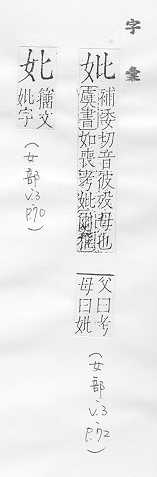 字彙
妣
補委切音彼歿母也
虞書如喪考妣爾雅
父曰考
母曰妣
(女部 v.3 p.72)
籀文
妣字
(女部 v.3 p.70)